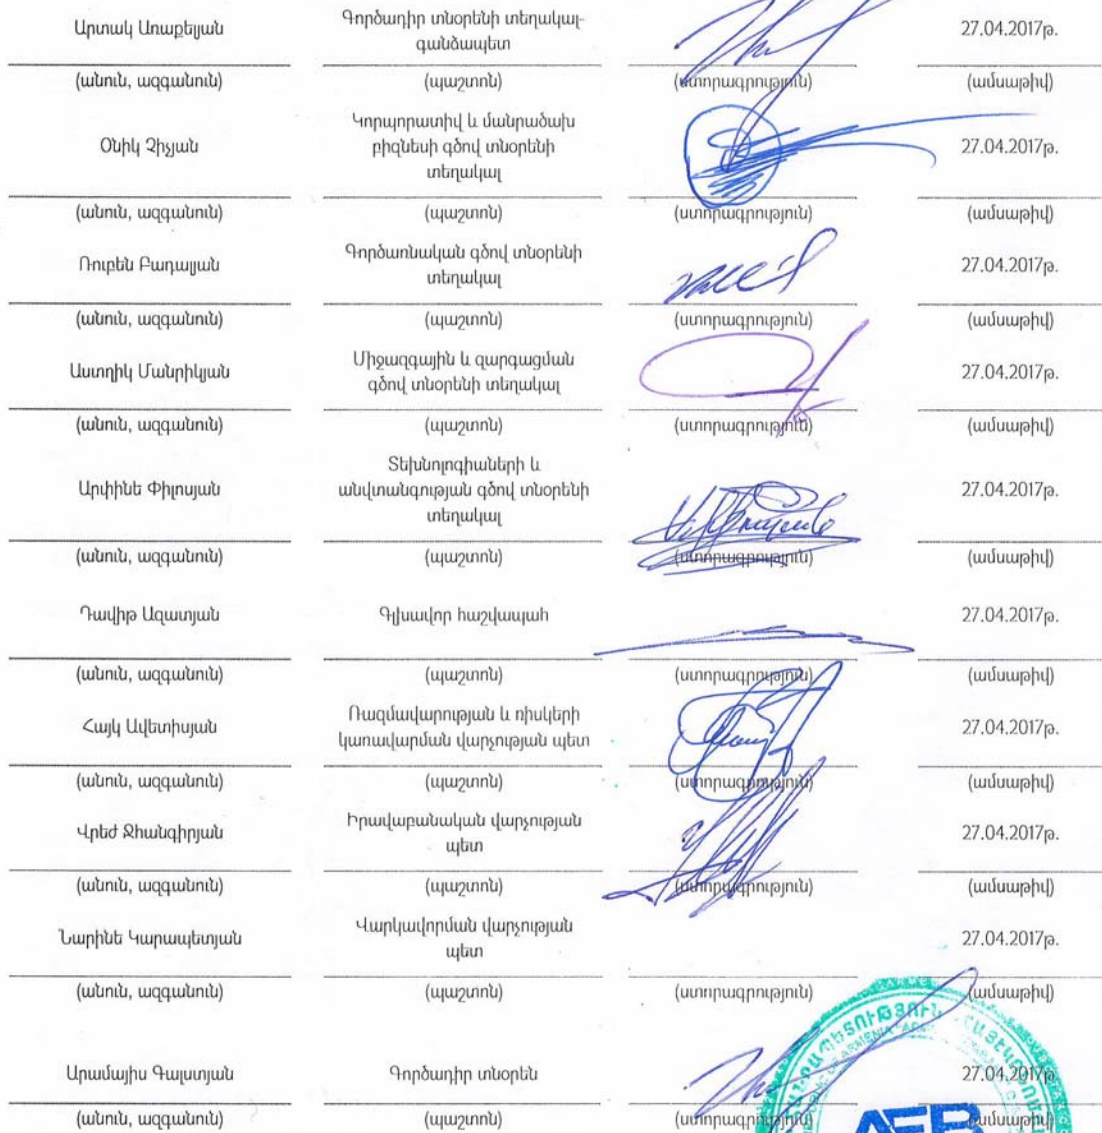 Արտակ Առաքելյան
Գործադիր տնօրենի տեղակալ-
գանձապետ
27.04.2017թ.
(անուն, ազգանուն) (պաշտոն) (ստորագրություն) (ամսաթիվ)
Օնիկ Չիչյան
Կորպորատիվ և մանրածախ
բիզնեսի գծով տնօրենի
տեղակալ
27.04.2017թ.
(անուն, ազգանուն) (պաշտոն) (ստորագրություն) (ամսաթիվ)
Ռուբեն Բադալյան
Գործառնական գծով տնօրենի
տեղակալ
27.04.2017թ.
(անուն, ազգանուն) (պաշտոն) (ստորագրություն) (ամսաթիվ)
Աստղիկ Մանրիկյան
Միջազգային և զարգացման
գծով տնօրենի տեղակալ
27.04.2017թ.
(անուն, ազգանուն) (պաշտոն) (ստորագրություն) (ամսաթիվ)
Արփինե Փիլոսյան
Տեխնոլոգիաների և
անվտանգության գծով տնօրենի
տեղակալ
27.04.2017թ.
(անուն, ազգանուն) (պաշտոն) (ստորագրություն) (ամսաթիվ)
Դավիթ Ազատյան
Գլխավոր հաշվապահ
27.04.2017թ.
(անուն, ազգանուն) (պաշտոն) (ստորագրություն) (ամսաթիվ)
Հայկ Ավետիսյան
Ռազմավարության և ռիսկերի
կառավարման վարչության պետ
27.04.2017թ.
(անուն, ազգանուն) (պաշտոն) (ստորագրություն) (ամսաթիվ)
Վրեժ Ջհանգիրյան
Իրավաբանական վարչության
պետ
27.04.2017թ.
(անուն, ազգանուն) (պաշտոն) (ստորագրություն) (ամսաթիվ)
Նարինե Կարապետյան
Վարկավորման վարչության
պետ
27.04.2017թ.
(անուն, ազգանուն) (պաշտոն) (ստորագրություն) (ամսաթիվ)
Արամայիս Գալստյան
Գործադիր տնօրեն
27.04.2017թ.
(անուն, ազգանուն) (պաշտոն) (ստորագրություն) (ամսաթիվ)
AEB